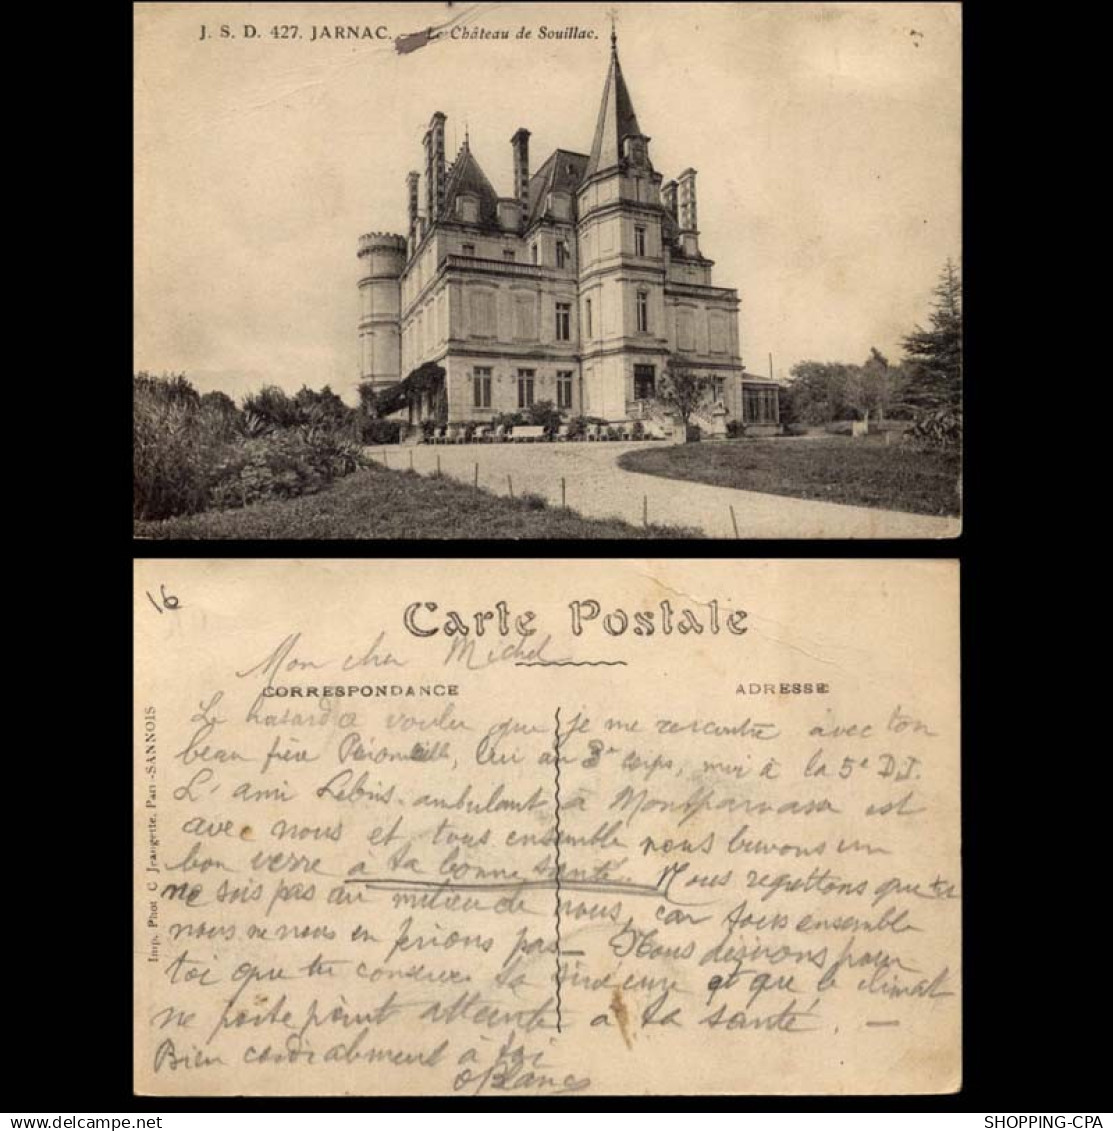 J. S. D. 427. JARNAC. — Le Château de Souillac.
16
Carte Postale
Mon cher Michel
CORRESPONDANCE
ADRESSE
Le hasard a voulu que je me rencontre avec ton
beau frère lui au 3e corps, moi à la 5e D.I.
L'ami ambulant à Montparnasse est
avec nous et tous ensemble nous buvons un
bon verre à ta bonne santé. Nous regrettons que tu
ne sois pas au milieu de nous, car tous ensemble
nous ne nous en ferions pas — Nous désirons pour
toi que tu conserves ta et que le climat
ne porte point atteinte à ta santé. —
Bien cordialement à toi
Blanc
Imp. Phot C Jeangette, Pari -SANNOIS
SHOPPING-CPA